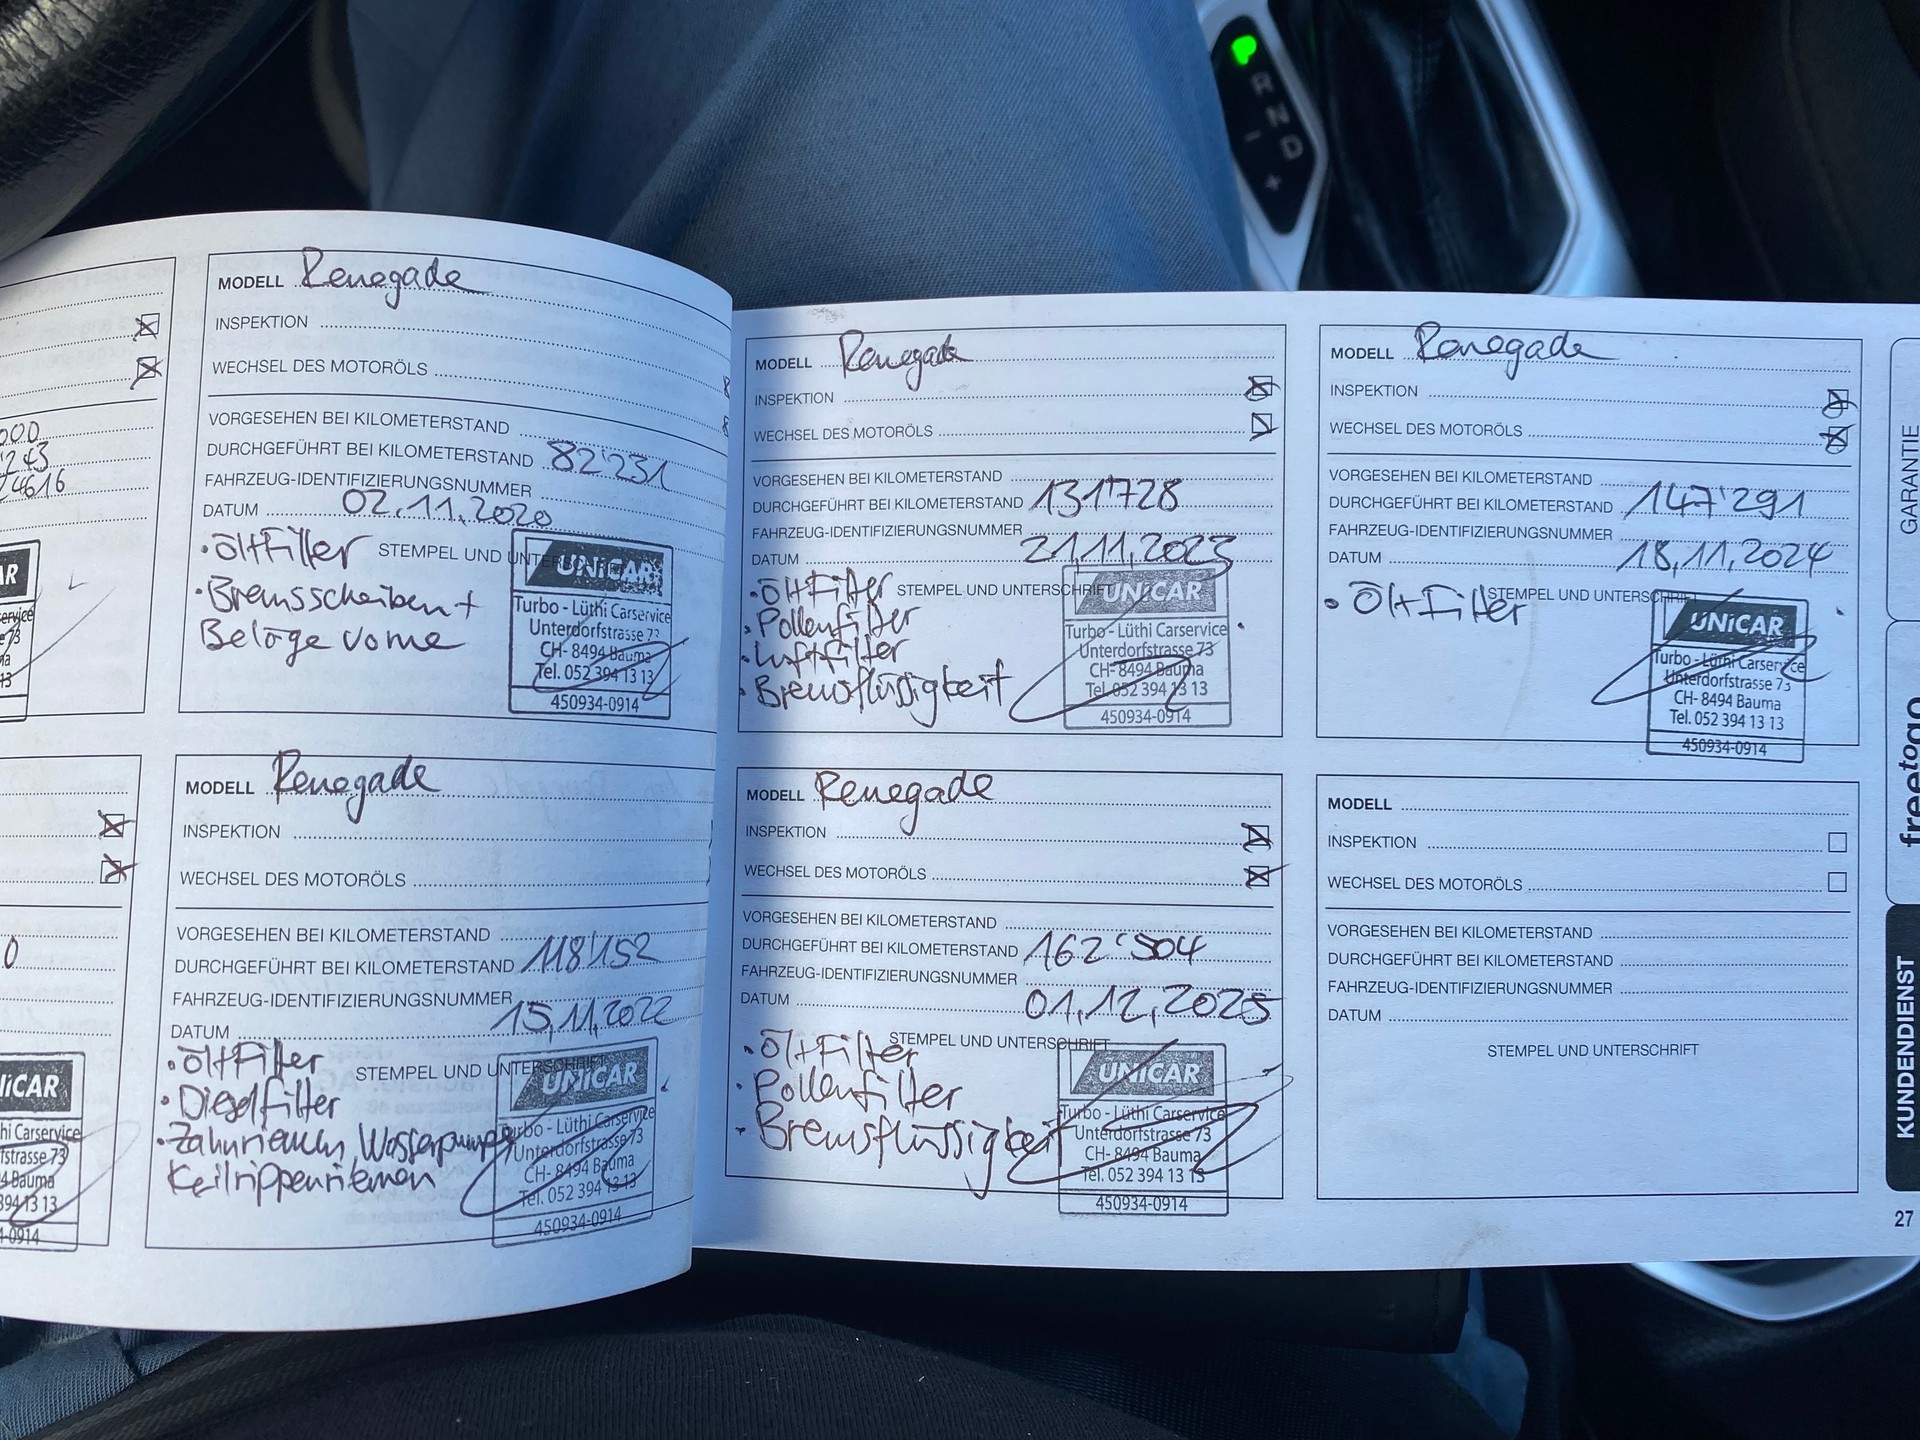 R
N
D
−
+
000
4616
0
MODELL Renegade
INSPEKTION
WECHSEL DES MOTORÖLS
VORGESEHEN BEI KILOMETERSTAND
DURCHGEFÜHRT BEI KILOMETERSTAND 82'231
FAHRZEUG-IDENTIFIZIERUNGSNUMMER
DATUM 02.11.2020
STEMPEL UND
• Öl+Filter
• Bremsscheiben+
Beläge vorne
UNICAR
Turbo - Lüthi Carservice
Unterdorfstrasse 73
CH- 8494 Bauma
Tel. 052 394 13 13
450934-0914
MODELL Renegade
INSPEKTION
WECHSEL DES MOTORÖLS
VORGESEHEN BEI KILOMETERSTAND
DURCHGEFÜHRT BEI KILOMETERSTAND 118'152
FAHRZEUG-IDENTIFIZIERUNGSNUMMER
DATUM 15.11.2022
STEMPEL UND UNTERSCHRIFT
• Öl+Filter
• Dieselfilter
• Zahnriemen, Wasserpumpe
Keilrippenriemen
UNICAR
Turbo - Lüthi Carservice
Unterdorfstrasse 73
CH- 8494 Bauma
Tel. 052 394 13 13
450934-0914
MODELL Renegade
INSPEKTION
WECHSEL DES MOTORÖLS
VORGESEHEN BEI KILOMETERSTAND
DURCHGEFÜHRT BEI KILOMETERSTAND 131'728
FAHRZEUG-IDENTIFIZIERUNGSNUMMER
DATUM 21.11.2023
STEMPEL UND UNTERSCHRIFT
• Öl+Filter
• Pollenfilter
• Luftfilter
• Bremsflüssigkeit
UNICAR
Turbo - Lüthi Carservice
Unterdorfstrasse 73
CH- 8494 Bauma
Tel. 052 394 13 13
450934-0914
MODELL Renegade
INSPEKTION
WECHSEL DES MOTORÖLS
VORGESEHEN BEI KILOMETERSTAND
DURCHGEFÜHRT BEI KILOMETERSTAND 147'291
FAHRZEUG-IDENTIFIZIERUNGSNUMMER
DATUM 18.11.2024
STEMPEL UND UNTERSCHRIFT
• Öl+Filter
UNICAR
Turbo - Lüthi Carservice
Unterdorfstrasse 73
CH- 8494 Bauma
Tel. 052 394 13 13
450934-0914
MODELL Renegade
INSPEKTION
WECHSEL DES MOTORÖLS
VORGESEHEN BEI KILOMETERSTAND
DURCHGEFÜHRT BEI KILOMETERSTAND 162'504
FAHRZEUG-IDENTIFIZIERUNGSNUMMER
DATUM 01.12.2025
STEMPEL UND UNTERSCHRIFT
• Öl+Filter
• Pollenfilter
• Bremsflüssigkeit
UNICAR
Turbo - Lüthi Carservice
Unterdorfstrasse 73
CH- 8494 Bauma
Tel. 052 394 13 13
450934-0914
MODELL
INSPEKTION
WECHSEL DES MOTORÖLS
VORGESEHEN BEI KILOMETERSTAND
DURCHGEFÜHRT BEI KILOMETERSTAND
FAHRZEUG-IDENTIFIZIERUNGSNUMMER
DATUM
STEMPEL UND UNTERSCHRIFT
GARANTIE
freetogo
KUNDENDIENST
27